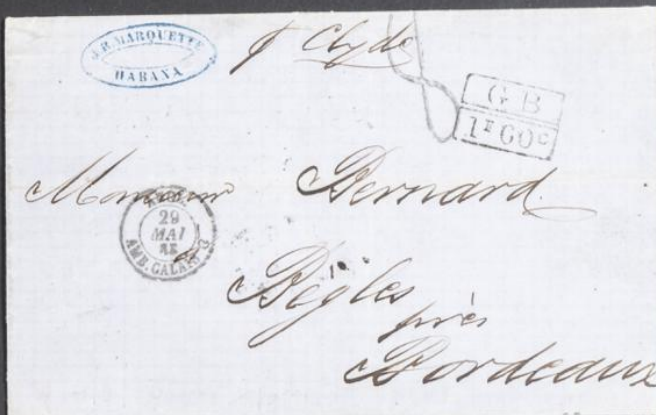 J.B. MARQUETTE
HABANA
p Clyde
GB
1F60c
Monsieur Bernard
29
MAI
AMB. CALAIS G
Bègles
près
Bordeaux